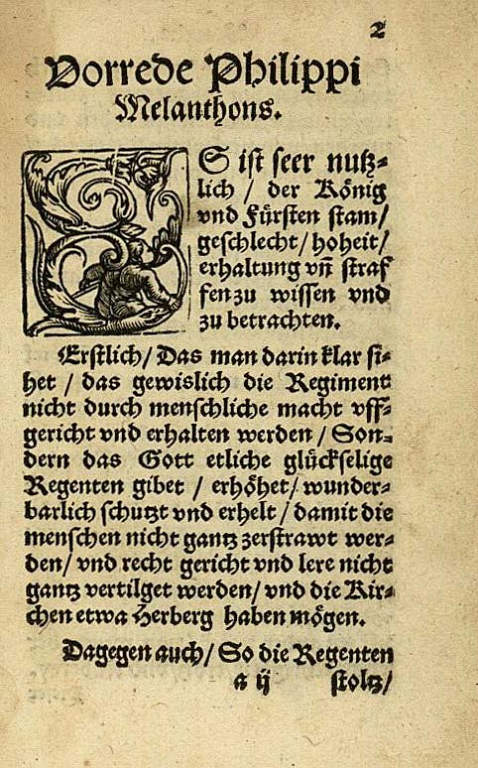 2
Vorrede Philippi
Melanthons.
ES ist seer nutz-
lich / der König
vnd Fürsten stam/
geschlecht/ hoheit/
erhaltung vñ straf
fen zu wissen vnd
zu betrachten.
Erstlich/ Das man darin klar si-
het / das gewislich die Regiment
nicht durch menschliche macht vff-
gericht vnd erhalten werden / Son-
dern das Gott etliche glückselige
Regenten gibet / erhöhet/ wunder-
barlich schutzt vnd erhelt / damit die
menschen nicht gantz zerstrawt wer-
den/ vnd recht gericht vnd lere nicht
gantz vertilget werden/ vnd die Kir-
chen etwa Herberg haben mögen.
Dagegen auch/ So die Regenten
a ij stoltz/